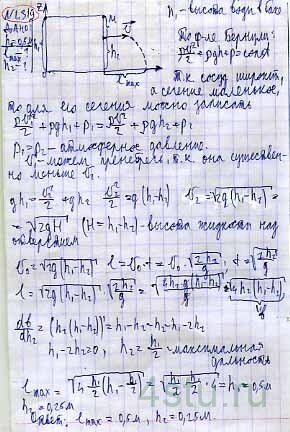 N 1.319
h₁ - высота воды в баке
Дано
h₁ = 0,5 м
l max - ?
h₂ - ?
M
h₂
l max
V
Т-ма Бернулли:
ρV²/2 + ρgh + p = const
Т.к. сосуд широкий,
а сечение маленькое,
то для его сечения можно записать
ρV₁²/2 + ρgh₁ + p₁ = ρV₂²/2 + ρgh₂ + p₂
p₁ = p₂ - атмосферное давление.
V₁ можем пренебречь, т.к. она существен-
но меньше V₂.
gh₁ = V₂²/2 + gh₂ V₂²/2 = g(h₁-h₂) V₂ = √2g(h₁-h₂) =
= √2gH (H = h₁-h₂) - высота жидкости над
отверстием
V₀ = √2g(h₁-h₂) l = V₀·t = V₀·√2h₂/g, t = √2h₂/g
l = √2g(h₁-h₂) √2h₂/g = √4h₂g(h₁-h₂)/g = √4h₂(h₁-h₂)
dl/dh₂ = (h₂(h₁-h₂))' = h₁-h₂-h₂ = h₁-2h₂
h₁-2h₂=0, h₂ = h₁/2 - максимальная
дальность
l max = √4 h₁/2 (h₁ - h₁/2) = √h₁/2 · h₁/2 · 4 = h₁ = 0,5 м
h₂ = 0,25 м
Ответ: l max = 0,5 м, h₂ = 0,25 м.
4stu.ru